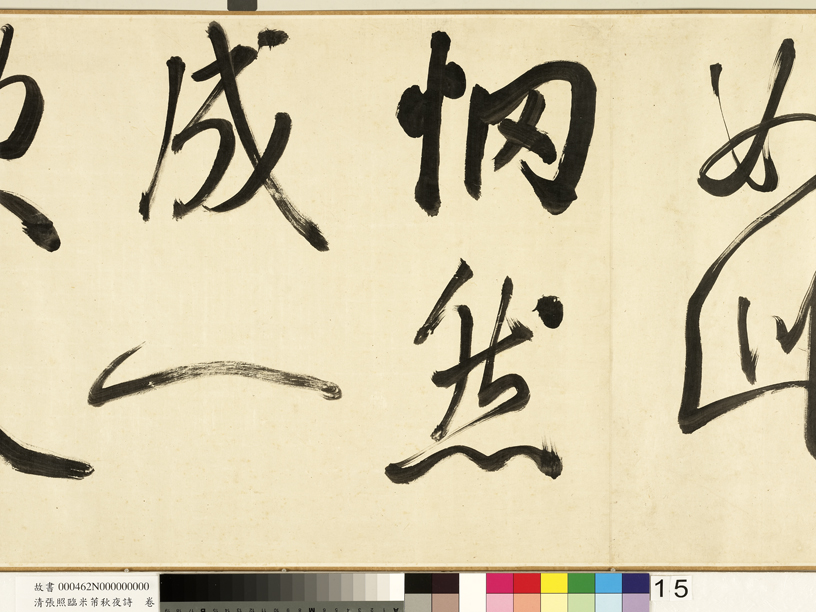 如
惘然
成一
故書 000462N000000000
清張照臨米芾秋夜詩 卷
15